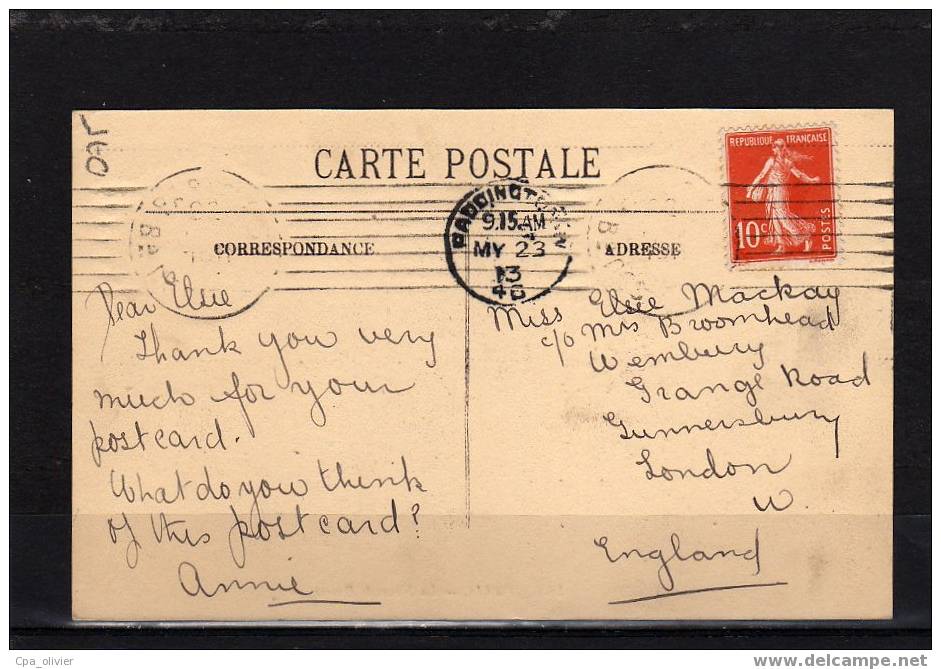 CARTE POSTALE
REPUBLIQUE FRANÇAISE
10c
POSTES
PADDINGTON W
9.15 AM
MY 23
13
46
CORRESPONDANCE
ADRESSE
Dear Elsie
Thank you very
much for your
postcard.
What do you think
of this postcard?
Annie
Miss Elsie Mackay
c/o Mrs Broomhead
Wembury
Grange Road
Gunnersbury
London
W.
England
Cpa_olivier
www.delcampe.net